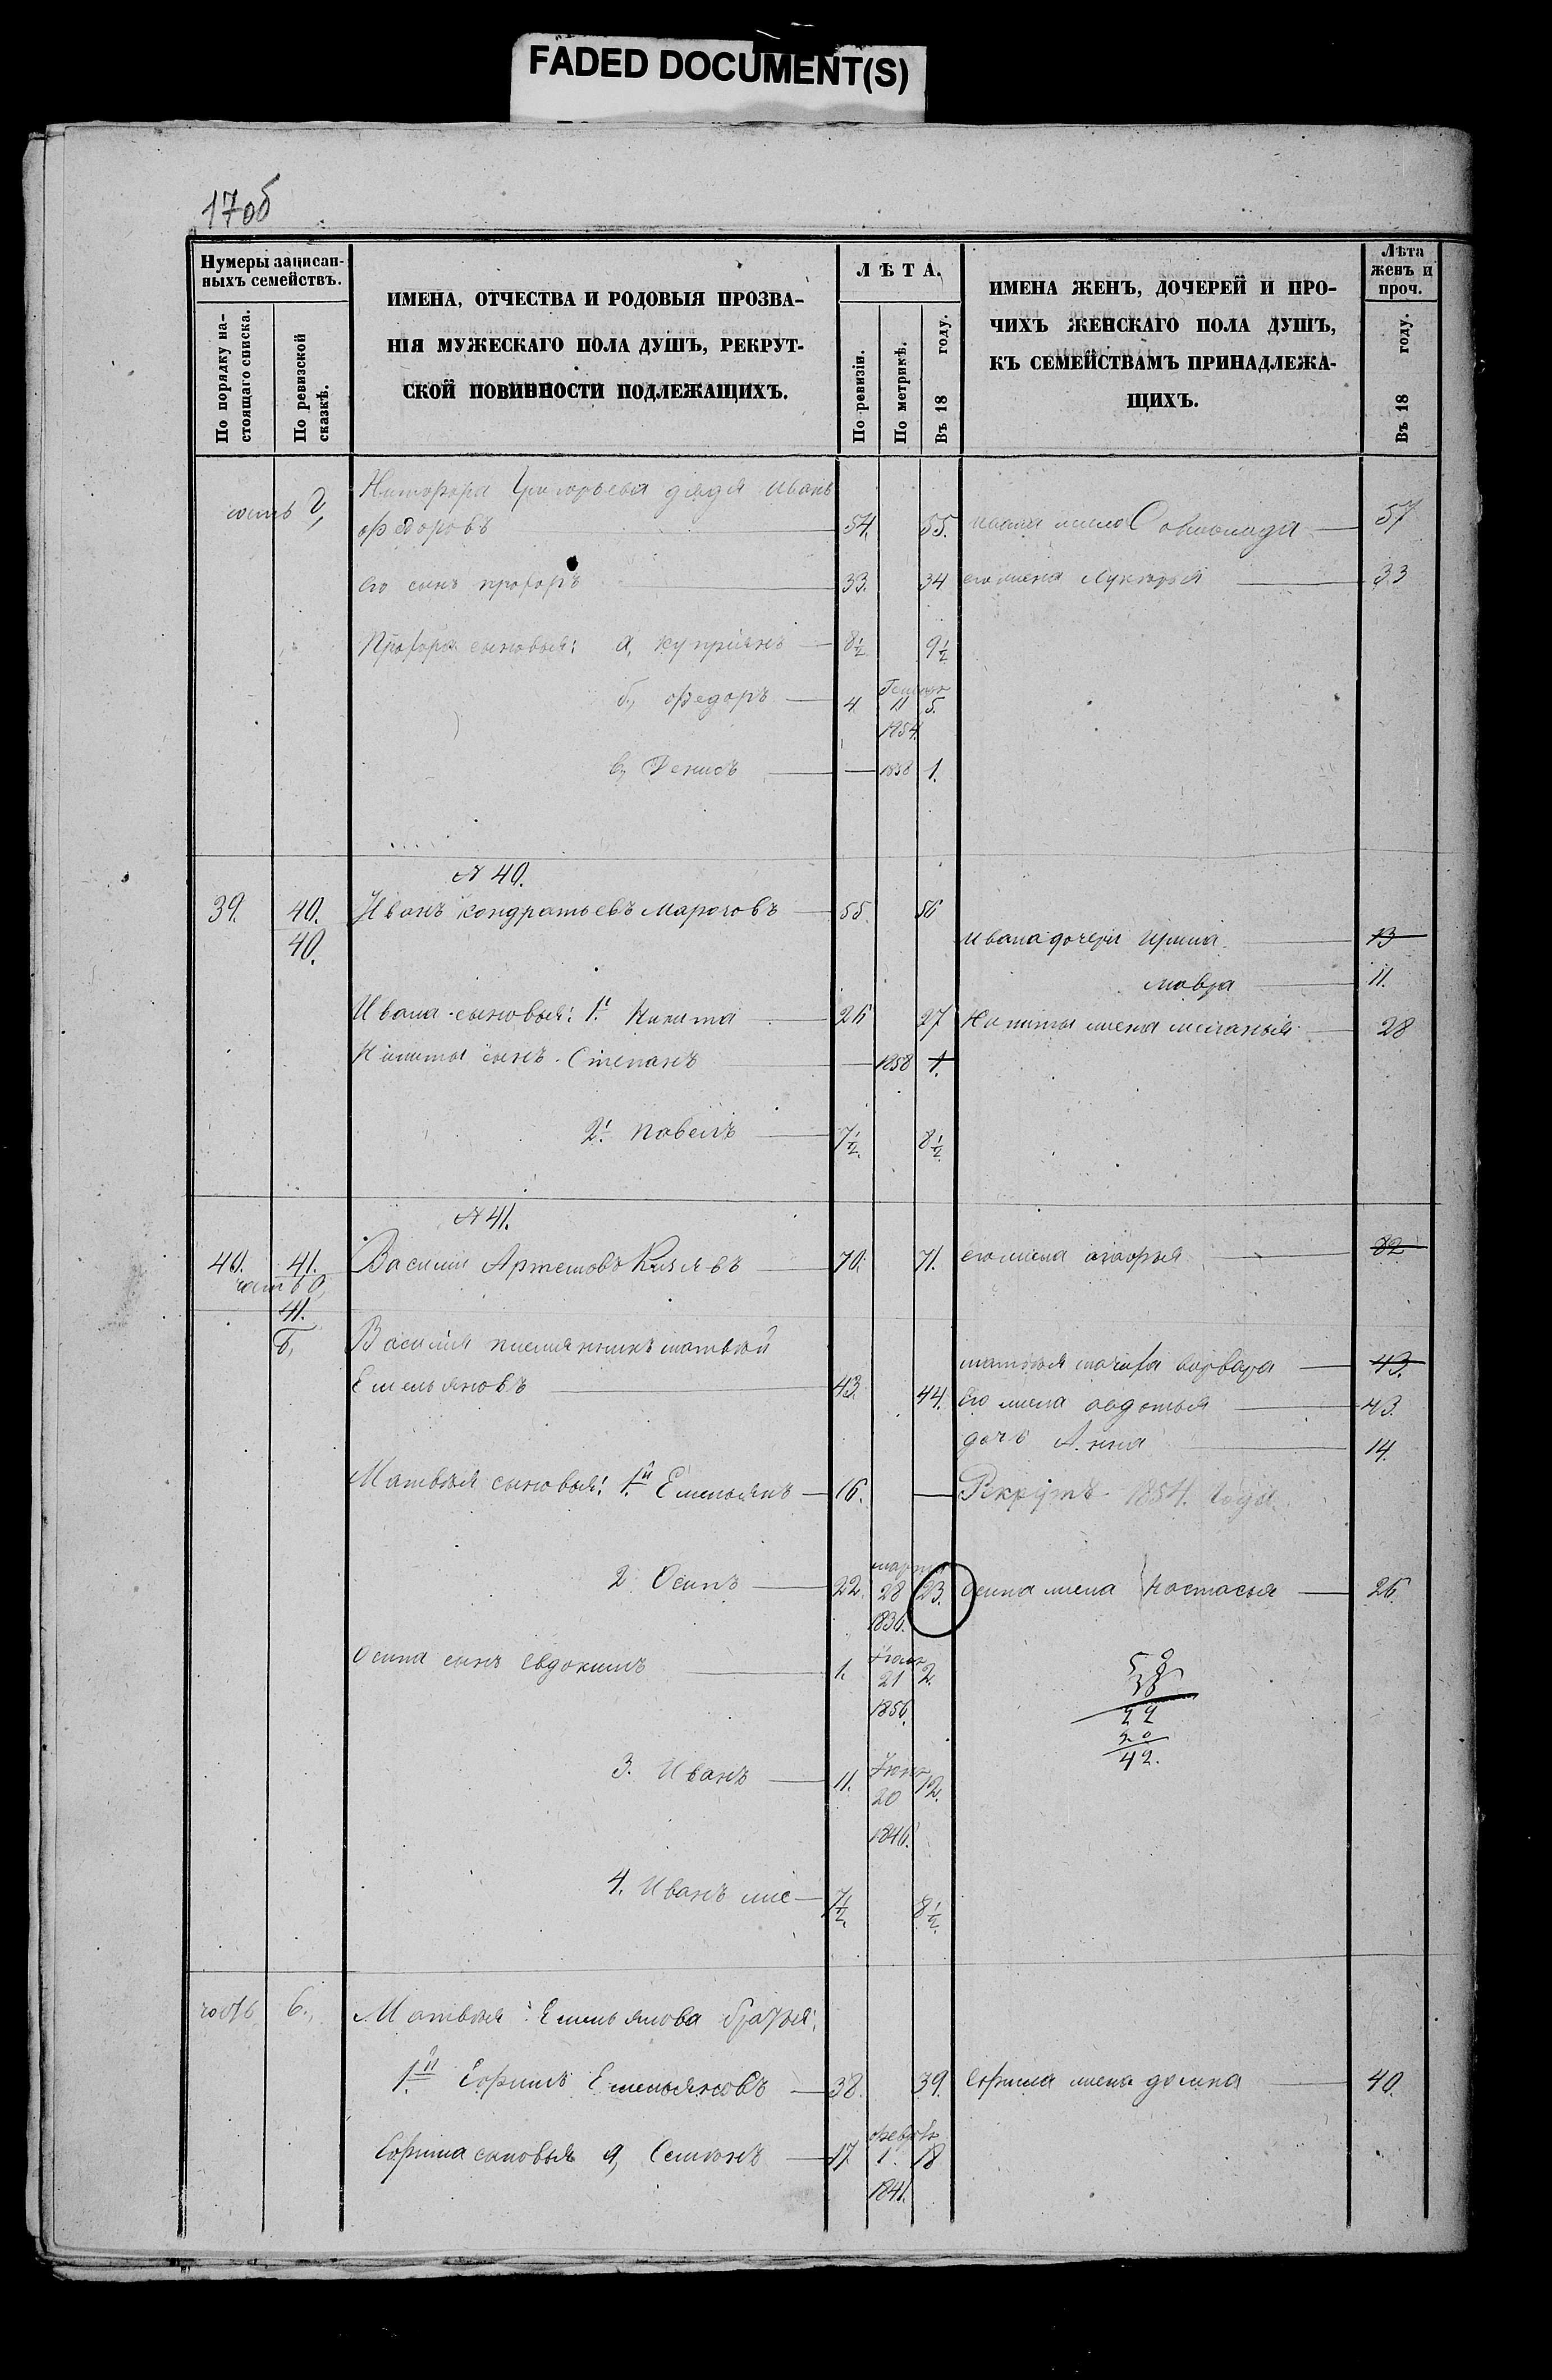 FADED DOCUMENT(S)
17об
Нумеры записан-
ныхъ семействъ.
По порядку на-
стоящаго списка.
По ревизской
сказкѣ.
ИМЕНА, ОТЧЕСТВА И РОДОВЫЯ ПРОЗВА-
НІЯ МУЖЕСКАГО ПОЛА ДУШЪ, РЕКРУТ-
СКОЙ ПОВИННОСТИ ПОДЛЕЖАЩИХЪ.
ЛѢТА.
По ревизіи.
По метрикѣ.
Въ 18 году.
ИМЕНА ЖЕНЪ, ДОЧЕРЕЙ И ПРО-
ЧИХЪ ЖЕНСКАГО ПОЛА ДУШЪ,
КЪ СЕМЕЙСТВАМЪ ПРИНАДЛЕЖА-
ЩИХЪ.
Лѣта
женъ и
проч.
Въ 18 году.
Григорьева дядя Иванъ
федоровъ 54. 55. Ивана жена 57
его сынъ профоръ 33. 34 его жена Лукерья 33
Профора сыновья: а, куприянъ 8½ 9½
б., федоръ 4 11 1854. 5.
в, Денисъ — 1858 1.
№ 40.
39. 40. Иванъ кондратьевъ 55. 56
40. Ивана дочери Ирина 13
мавра 11.
Ивана сыновья: 1й Никита 26 27 Никиты жена меланья 28
Никиты сынъ Степанъ — 1858 1.
2й павелъ 7½ 8½
№ 41.
40. 41. Василий Артемовъ 70. 71. его жена 82
часть а,
41.
б, Василия племянникъ матвѣй
Емельяновъ 43. 44.
матвѣя мачиха варвара 43.
его жена авдотья 43.
дочь Анна 14.
Матвѣя сыновья: 1й Емельянъ 16. — Рекрутъ 1854. года
2 Осипъ 22. марта 28 1836. 23. осипа жена настасья 26.
осипа сынъ евдокимъ 1. 21 1856. 2.
58
36
22
20
42.
3. Иванъ 11. 20 1846. 12.
4. Иванъ же 7½ 8½
часть б., Матвѣя Емельянова братья:
1й Ефимъ Емельяновъ 38. 39. ефима жена домна 40.
Ефима сыновья а, Семіонъ 17. февр 1 1841. 18